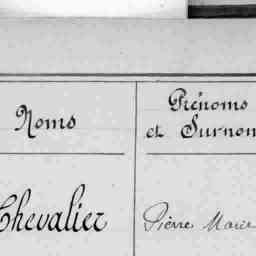 Noms
Prénoms
et Surnom
Chevalier
Pierre Marie